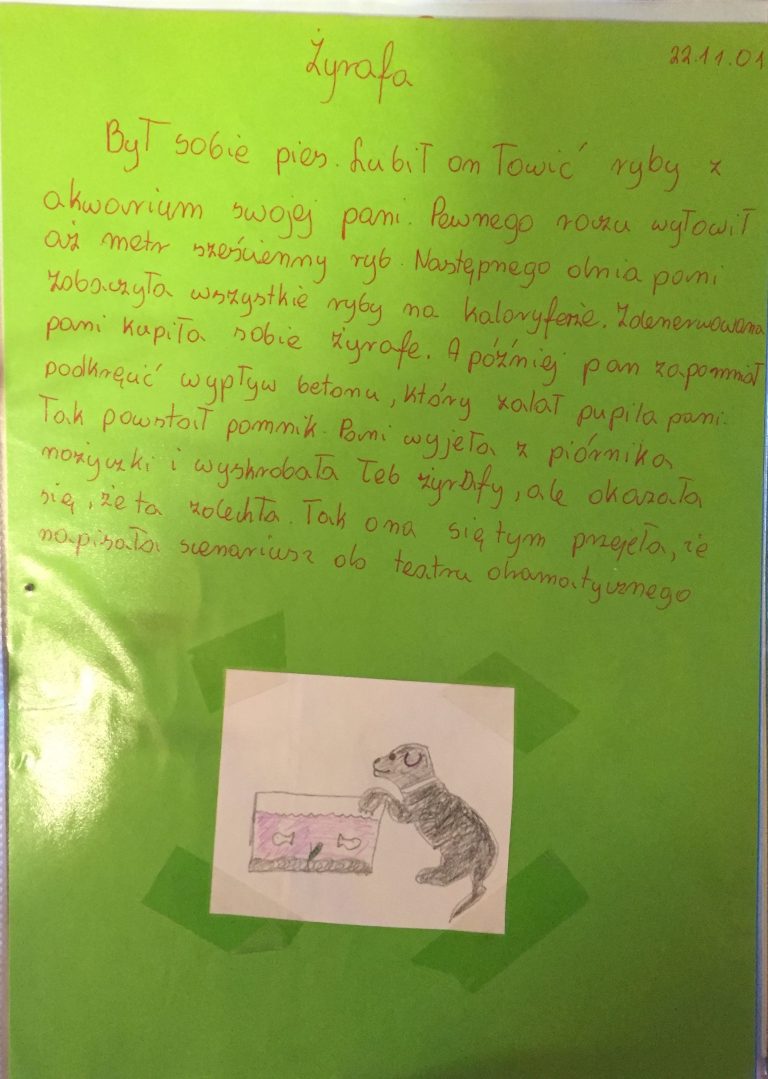 Żyrafa
22.11.01
Był sobie pies. Lubił on łowić ryby z
akwarium swojej pani. Pewnego razu wyłowił
aż metr sześcienny ryb. Następnego dnia pani
zobaczyła wszystkie ryby na kaloryferze. Zdenerwowana
pani kupiła sobie żyrafe. A później pan zapomniał
podkręcić wypływ betonu, który zalał pupila pani.
Tak powstał pomnik. Pani wyjęła z piórnika
nożyczki i wyskrobała łeb żyrafy, ale okazała
się, że ta zdechła. Tak ona się tym przejęła, że
napisała scenariusz do teatru dramatycznego